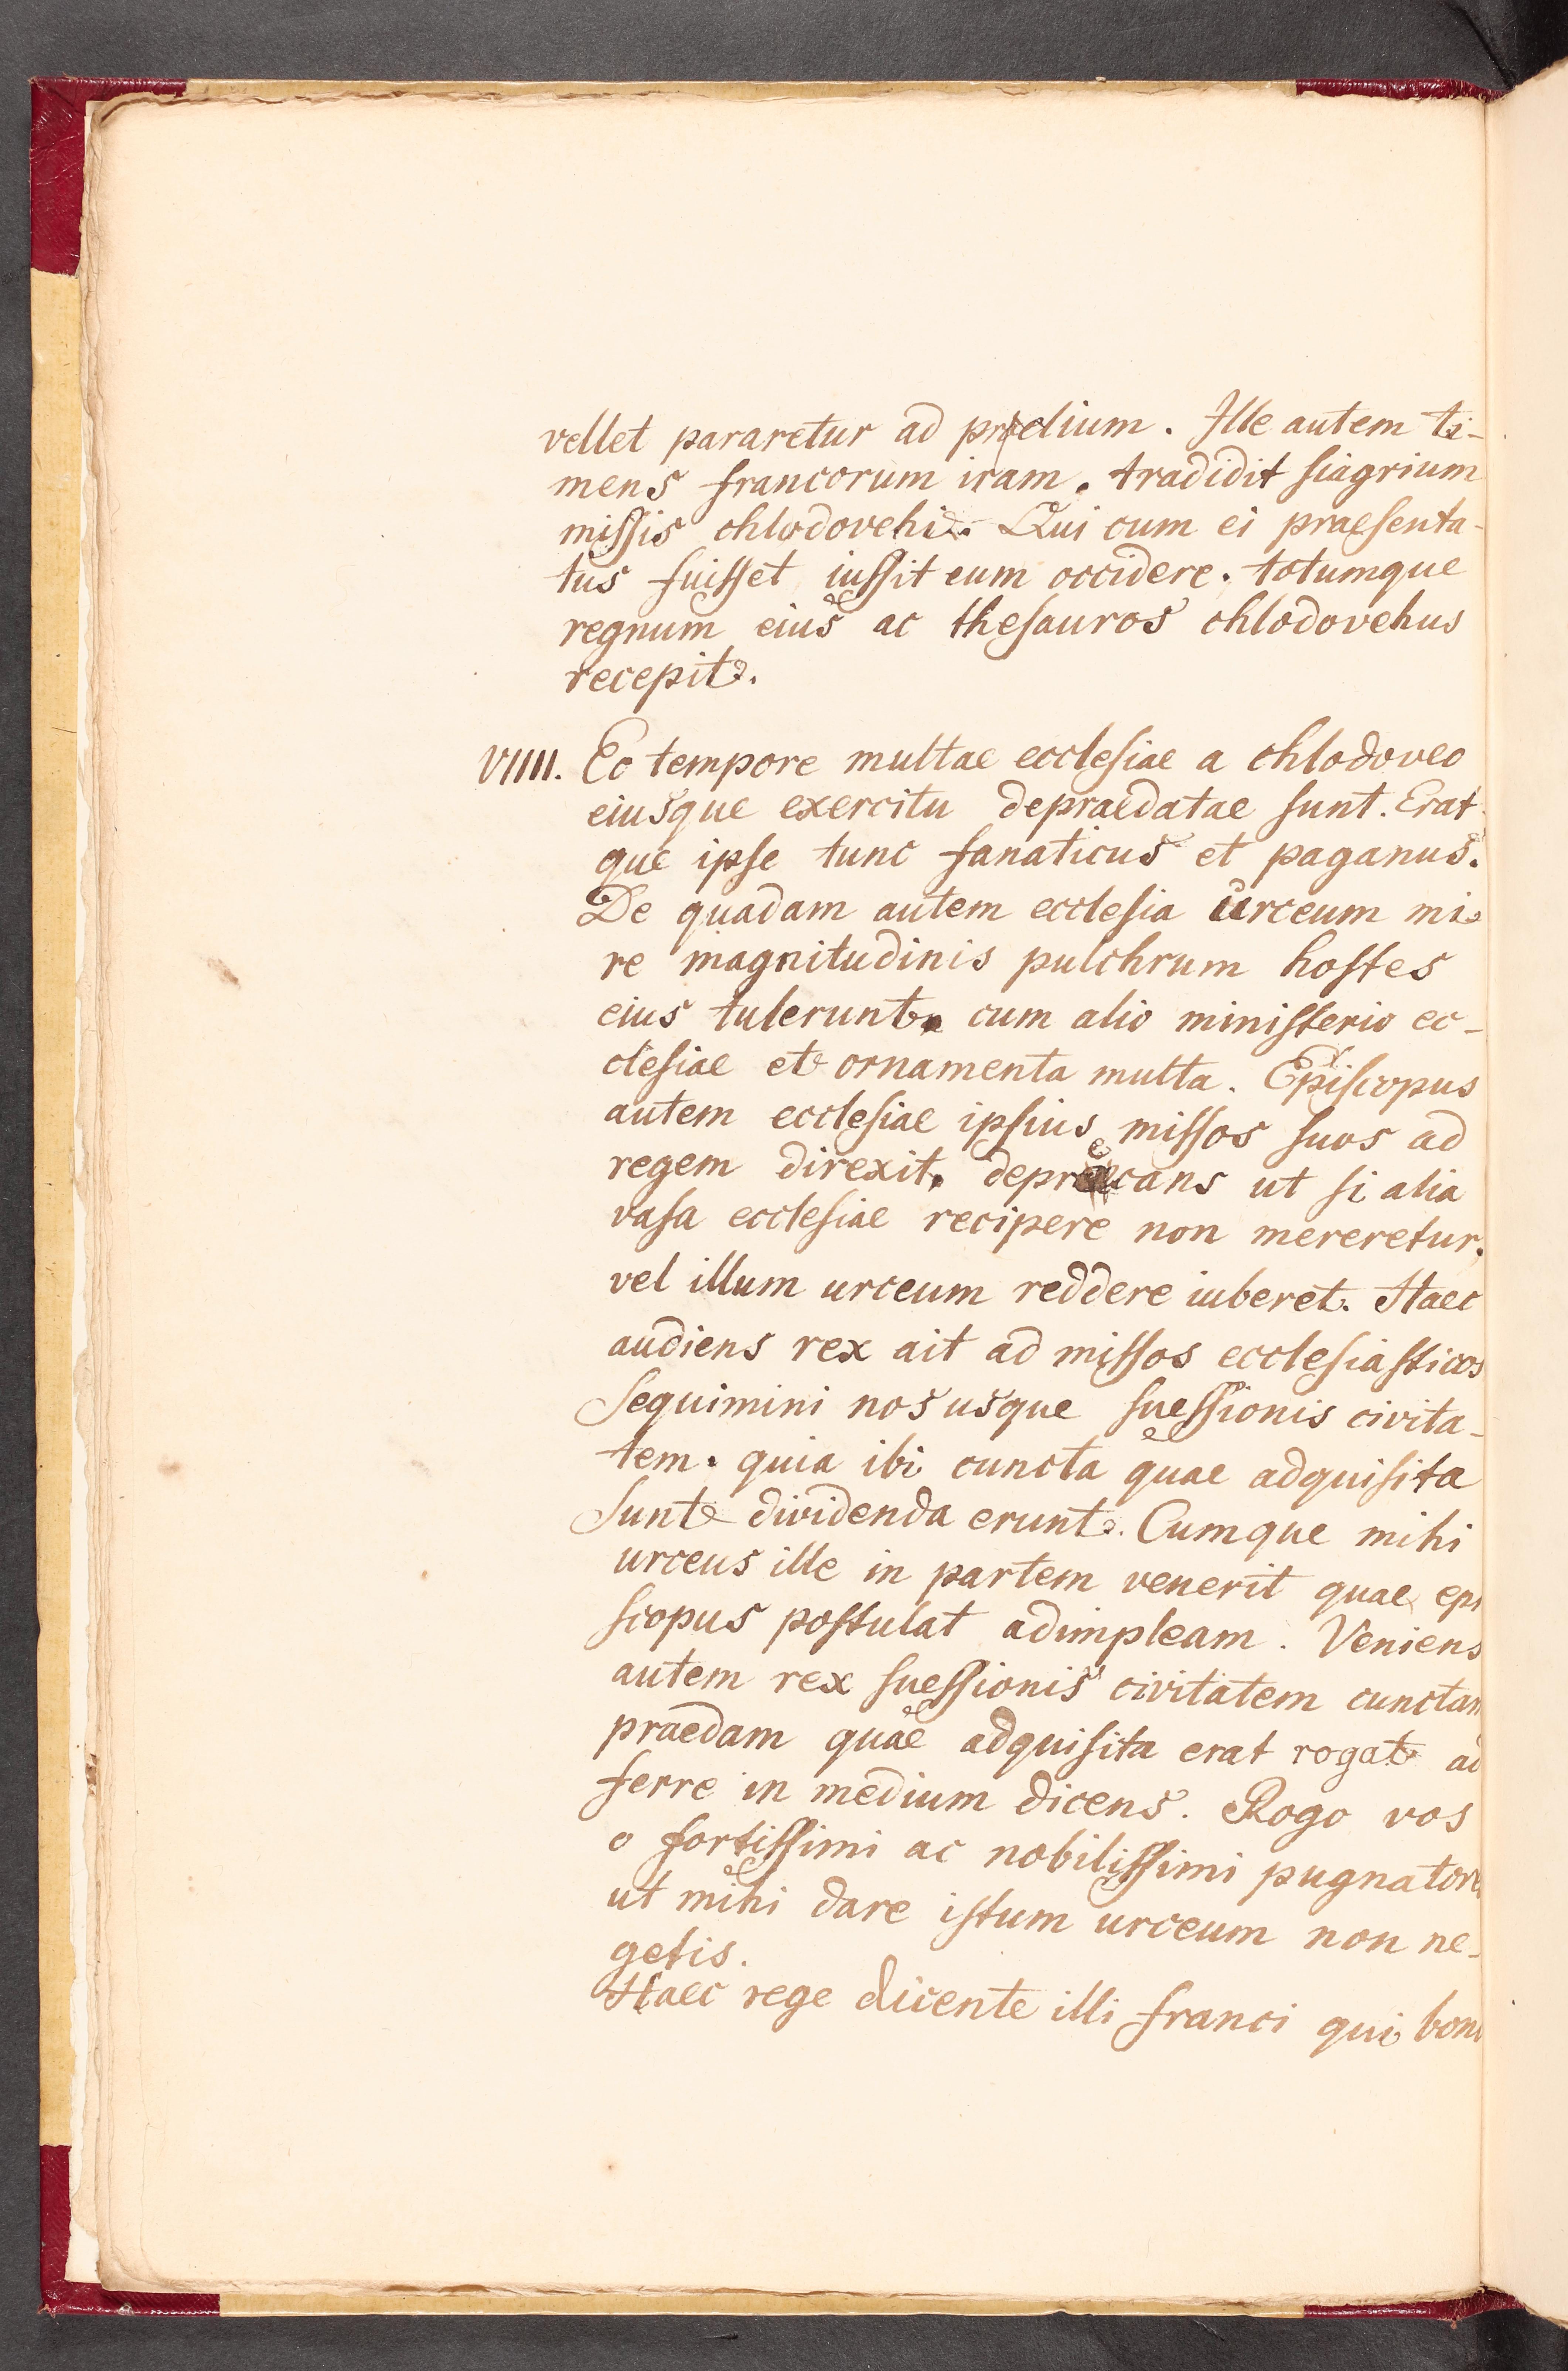 vellet pararetur ad proelium. Ille autem ti-
mens francorum iram. tradidit siagrium
missis chlodovehi. Qui cum ei praesenta-
tus fuisset iussit eum occidere. totumque
regnum eius ac thesauros chlodovehus
recepit.
VIIII. Eo tempore multae ecclesiae a chlodoveo
eiusque exercitu depraedatae sunt. Erat-
que ipse tunc fanaticus et paganus.
De quadam autem ecclesia urceum mi-
re magnitudinis pulchrum hostes
eius tulerunt. cum alio ministerio ec-
clesiae et ornamenta multa. Episcopus
autem ecclesiae ipsius missos suos ad
regem direxit. deprecans ut si alia
vasa ecclesiae recipere non mereretur.
vel illum urceum reddere iuberet. Haec
audiens rex ait ad missos ecclesiasticos
Sequimini nos usque suessionis civita-
tem. quia ibi cuncta quae adquisita
sunt dividenda erunt. Cumque mihi
urceus ille in partem venerit quae epi
scopus postulat adimpleam. Veniens
autem rex suessionis civitatem cunctam
praedam quae adquisita erat rogat ad
ferre in medium dicens. Rogo vos
o fortissimi ac nobilissimi pugnatores
ut mihi dare istum urceum non ne-
getis.
Haec rege dicente illi franci qui bon